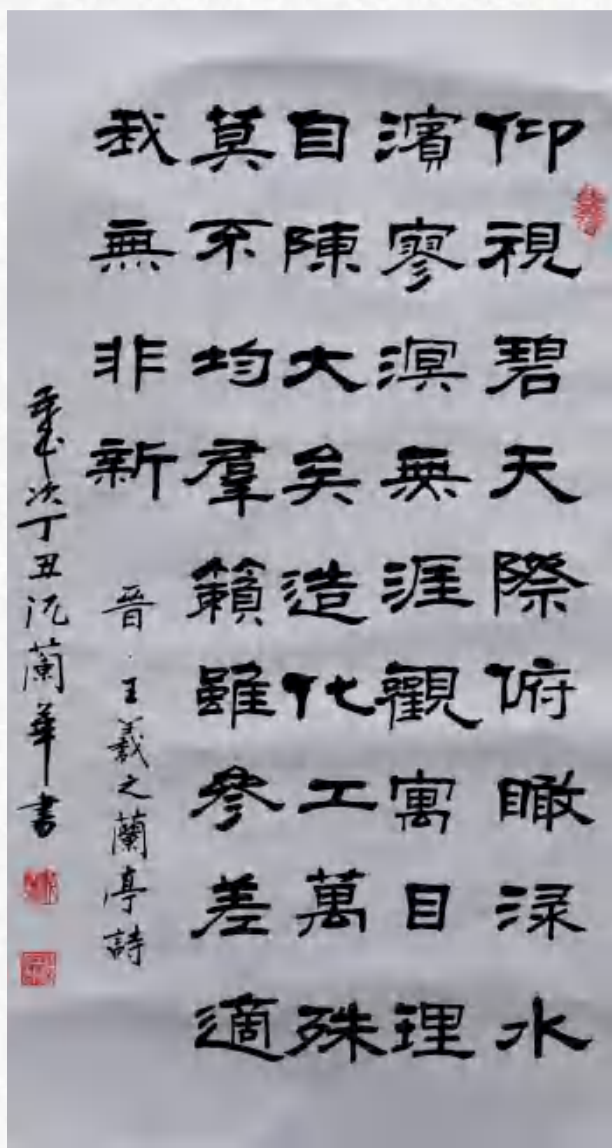 仰視碧天際俯瞰渌水
濱寥溟無涯觀寓目理
自陳大矣造化工萬殊
莫不均羣籟雖參差適
我無非新
晉·王羲之蘭亭詩
歲次丁丑沈蘭華書